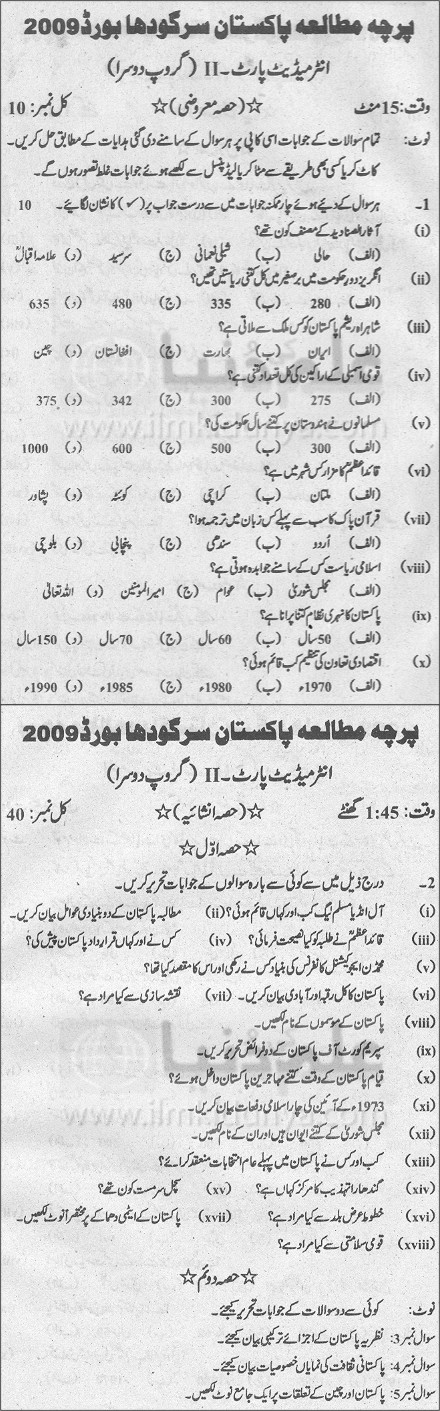 پرچہ مطالعہ پاکستان سرگودھا بورڈ 2009
انٹرمیڈیٹ پارٹ ۔ II (گروپ دوسرا)
وقت: 15 منٹ ☆(حصہ معروضی)☆ کل نمبر: 10
نوٹ: تمام سوالات کے جوابات اسی کاپی پر ہر سوال کے سامنے دی گئی ہدایات کے مطابق حل کریں۔
کاٹ کر یا کسی بھی طریقے سے مٹا کر یا لیڈ پنسل سے لکھے ہوئے جوابات غلط تصور ہوں گے۔
1۔ ہر سوال کے دیئے ہوئے چار ممکنہ جوابات میں سے درست جواب پر (✓) کا نشان لگائیے۔ 10
(i) آثار الصنادید کے مصنف کون تھے؟
(الف) حالی (ب) شبلی نعمانی (ج) سرسید (د) علامہ اقبالؒ
(ii) انگریز دور حکومت میں برصغیر میں کل کتنی ریاستیں تھیں؟
(الف) 280 (ب) 335 (ج) 480 (د) 635
(iii) شاہراہ ریشم پاکستان کو کس ملک سے ملاتی ہے؟
(الف) ایران (ب) بھارت (ج) افغانستان (د) چین
(iv) قومی اسمبلی کے اراکین کی کل تعداد کتنی ہے؟
(الف) 275 (ب) 300 (ج) 342 (د) 375
(v) مسلمانوں نے ہندوستان پر کتنے سال حکومت کی؟
(الف) 300 (ب) 500 (ج) 600 (د) 1000
(vi) قائداعظم کا مزار کس شہر میں ہے؟
(الف) ملتان (ب) کراچی (ج) کوئٹہ (د) پشاور
(vii) قرآن پاک کا سب سے پہلے کس زبان میں ترجمہ ہوا؟
(الف) اُردو (ب) سندھی (ج) پنجابی (د) بلوچی
(viii) اسلامی ریاست کس کے سامنے جوابدہ ہوتی ہے؟
(الف) مجلس شوریٰ (ب) عوام (ج) امیر المومنین (د) اللہ تعالیٰ
(ix) پاکستان کا نہری نظام کتنا پرانا ہے؟
(الف) 50 سال (ب) 60 سال (ج) 70 سال (د) 150 سال
(x) اقتصادی تعاون کی تنظیم کب قائم ہوئی؟
(الف) 1970ء (ب) 1980ء (ج) 1985ء (د) 1990ء
پرچہ مطالعہ پاکستان سرگودھا بورڈ 2009
انٹرمیڈیٹ پارٹ ۔ II (گروپ دوسرا)
وقت: 1:45 گھنٹے ☆(حصہ انشائیہ)☆ کل نمبر: 40
☆ حصہ اوّل ☆
2۔ درج ذیل میں سے کوئی سے بارہ سوالوں کے جوابات تحریر کریں۔
(i) آل انڈیا مسلم لیگ کب اور کہاں قائم ہوئی؟ (ii) مطالبہ پاکستان کے دو بنیادی عوامل بیان کریں۔
(iii) قائداعظمؒ نے طلبہ کو کیا نصیحت فرمائی؟ (iv) کس نے اور کہاں قرارداد پاکستان پیش کی؟
(v) محمڈن ایجوکیشنل کانفرنس کی بنیاد کس نے رکھی اور اس کا مقصد کیا تھا؟
(vi) پاکستان کا کل رقبہ اور آبادی بیان کریں۔ (vii) نقشہ سازی سے کیا مراد ہے؟
(viii) پاکستان کے موسموں کے نام لکھیں۔
(ix) سپریم کورٹ آف پاکستان کے دو فرائض تحریر کریں۔
(x) قیام پاکستان کے وقت کتنے مہاجرین پاکستان داخل ہوئے؟
(xi) 1973ء کے آئین کی چار اسلامی دفعات بیان کریں۔
(xii) مجلس شوریٰ کے کتنے ایوان ہیں اور ان کے نام لکھیں۔
(xiii) کب اور کس نے پاکستان میں پہلے عام انتخابات منعقد کرائے؟
(xiv) گندھارا تہذیب کا مرکز کہاں ہے؟ (xv) سچل سرمست کون تھے؟
(xvi) خطوط عرض بلد سے کیا مراد ہے؟ (xvii) پاکستان کے ایٹمی دھماکے پر مختصر نوٹ لکھیں۔
(xviii) قومی سلامتی سے کیا مراد ہے؟
☆ حصہ دوئم ☆
نوٹ: کوئی سے دو سوالات کے جوابات تحریر کیجئے۔
سوال نمبر 3: نظریہ پاکستان کے اجزائے ترکیبی بیان کیجئے۔
سوال نمبر 4: پاکستانی ثقافت کی نمایاں خصوصیات بیان کیجئے۔
سوال نمبر 5: پاکستان اور چین کے تعلقات پر ایک جامع نوٹ لکھیں۔